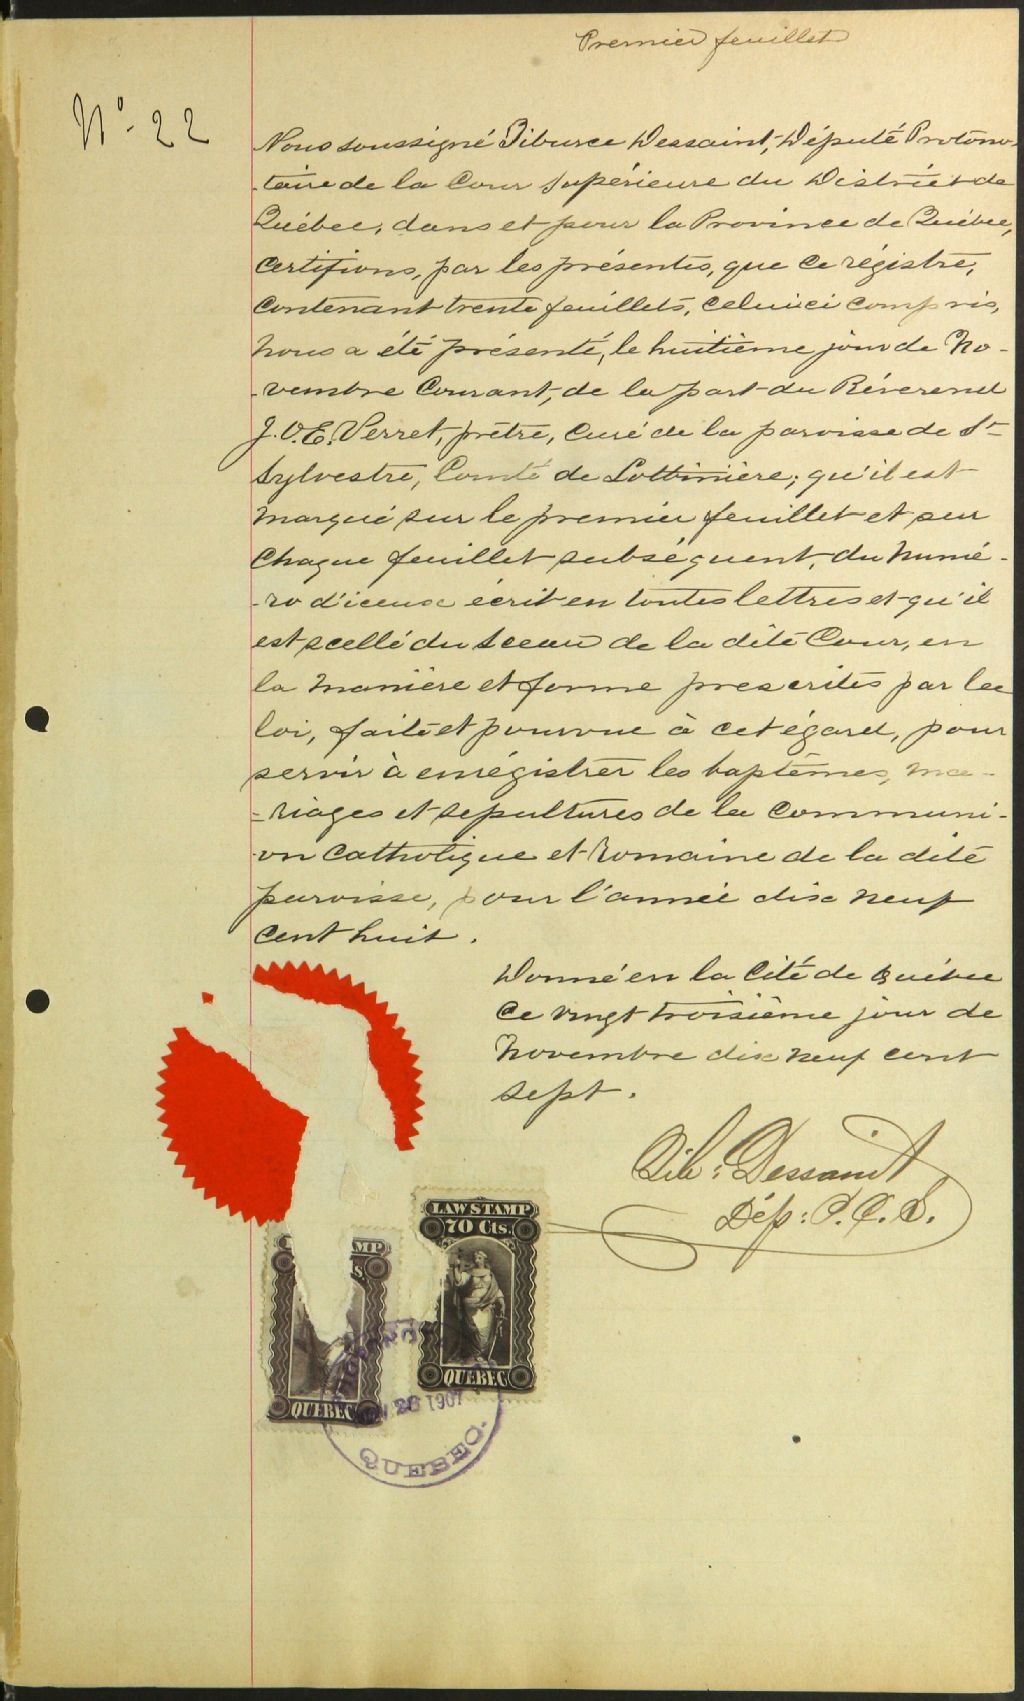 Premier feuillet
No. 22
Nous soussigné Tiburce Dessaint, Député Protono-
-taire de la Cour Supérieure du District de
Québec, dans et pour la Province de Québec,
certifions, par les présentes, que ce régistre,
contenant trente feuillets, celui ici compris,
nous a été présenté, le huitième jour de No-
-vembre courant, de la part du Révérend
J. O. E. Verret, prêtre, curé de la paroisse de St
Sylvestre, Comté de Lotbinière; qu'il est
marqué sur le premier feuillet et sur
chaque feuillet subséquent, du numé-
-ro d'iceux écrit en toutes lettres et qu'il
est scellé du sceau de la dite Cour, en
la manière et forme prescrites par la
loi, faite et pourvue à cet égard, pour
servir à enrégistrer les baptêmes, ma-
-riages et sépultures de la communi-
-on Catholique et Romaine de la dite
paroisse, pour l'année dix neuf
cent huit.
Donné en la Cité de Québec
ce vingt troisième jour de
Novembre dix neuf cent
sept.
Tib: Dessaint
Dép: P. C. S.
LAW STAMP
70 Cts.
QUEBEC
MP
S.
QUEBEC
26 1907
QUEBEC.